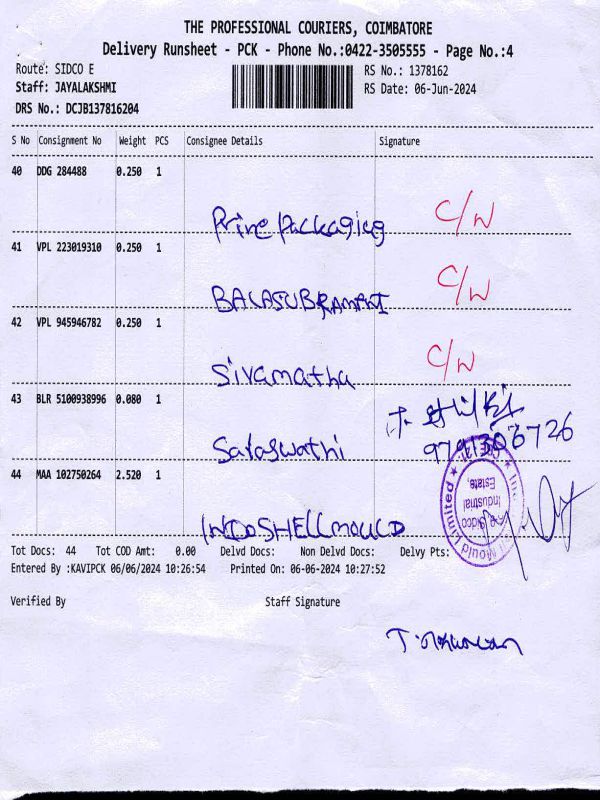 THE PROFESSIONAL COURIERS, COIMBATORE
Delivery Runsheet - PCK - Phone No.:0422-3505555 - Page No.:4
Route: SIDCO E RS No.: 1378162
Staff: JAYALAKSHMI RS Date: 06-Jun-2024
DRS No.: DCJB137816204
S No Consignment No Weight PCS Consignee Details Signature
40 DDG 284488 0.250 1
Prime packaging C/W
41 VPL 223019310 0.250 1
BALASUBRAMANI C/W
42 VPL 945946782 0.250 1
Sivamatha C/W
43 BLR 5100938996 0.080 1
Saraswathi
9791306726
44 MAA 102750264 2.520 1
INDOSHELL MOULD
Mould Limited
Sidco
Industrial
Estate,
Tot Docs: 44 Tot COD Amt: 0.00 Delvd Docs: Non Delvd Docs: Delvy Pts:
Entered By :KAVIPCK 06/06/2024 10:26:54 Printed On: 06-06-2024 10:27:52
Verified By Staff Signature